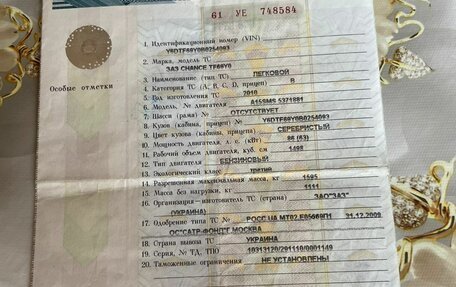 61 УЕ 748584
1. Идентификационный номер (VIN) Y6DTF69Y0B0254093
2. Марка, модель ТС ЗАЗ CHANCE TF69Y0
3. Наименование (тип ТС) ЛЕГКОВОЙ
4. Категория ТС (А, В, С, D, прицеп) В
5. Год изготовления ТС 2010
6. Модель, № двигателя A15SMS 5371881
7. Шасси (рама) № ОТСУТСТВУЕТ
8. Кузов (кабина, прицеп) № Y6DTF69Y0B0254093
9. Цвет кузова (кабины, прицепа) СЕРЕБРИСТЫЙ
10. Мощность двигателя, л. с. (кВт) 86 (63)
11. Рабочий объем двигателя, куб. см 1498
12. Тип двигателя БЕНЗИНОВЫЙ
13. Экологический класс третий
14. Разрешенная максимальная масса, кг 1595
15. Масса без нагрузки, кг 1111
16. Организация—изготовитель ТС (страна) ЗАО"ЗАЗ"
(УКРАИНА)
17. Одобрение типа ТС № РОСС UA.MT02.E05668П1 31.12.2009
ОС"САТР-ФОНД"Г МОСКВА
18. Страна вывоза ТС УКРАИНА
19. Серия, № ТД, ТПО 10313120/291110/0001149
20. Таможенные ограничения НЕ УСТАНОВЛЕНЫ
Особые отметки